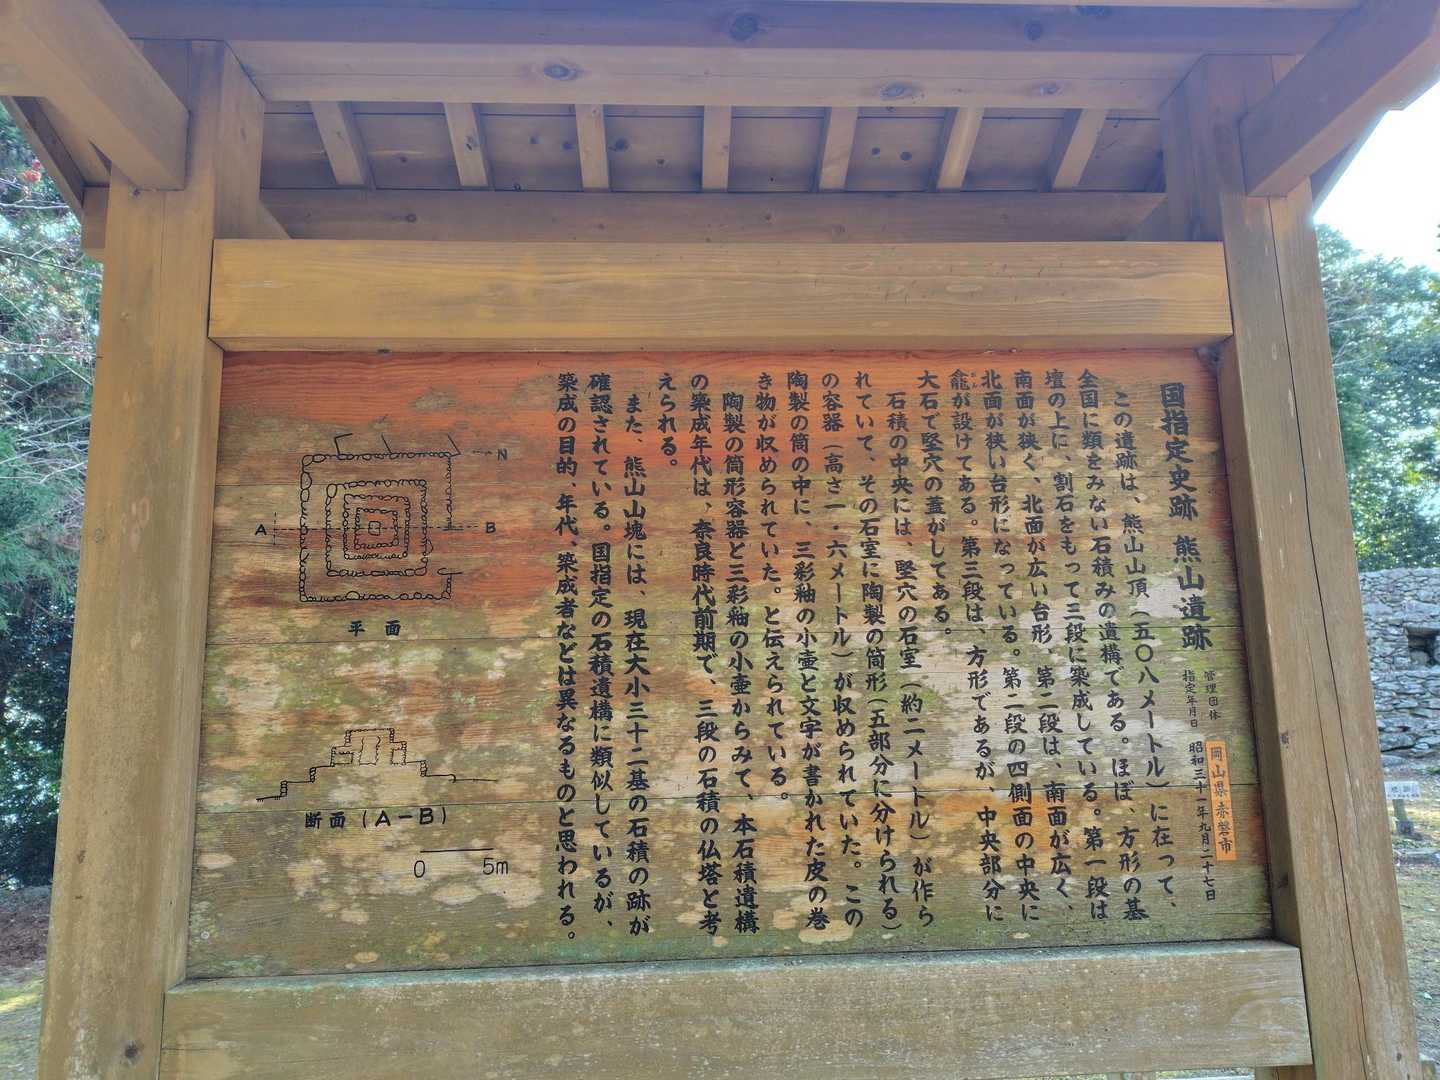 国指定史跡 熊山遺跡
管理団体 岡山県赤磐市
指定年月日 昭和三十一年九月二十七日
この遺跡は、熊山山頂（五〇八メートル）に在って、
全国に類をみない石積みの遺構である。ほぼ、方形の基
壇の上に、割石をもって三段に築成している。第一段は、
南面が狭く、北面が広い台形、第二段は、南面が広く、
北面が狭い台形になっている。第二段の四側面の中央に
龕が設けてある。第三段は、方形であるが、中央部分に
大石で竪穴の蓋がしてある。
石積の中央には、竪穴の石室（約二メートル）が作ら
れていて、その石室に陶製の筒形（五部分に分けられる）
の容器（高さ一・六メートル）が収められていた。この
陶製の筒の中に、三彩釉の小壷と文字が書かれた皮の巻
き物が収められていた。と伝えられている。
陶製の筒形容器と三彩釉の小壷からみて、本石積遺構
の築成年代は、奈良時代前期で、三段の石積の仏塔と考
えられる。
また、熊山山塊には、現在大小三十二基の石積の跡が
確認されている。国指定の石積遺構に類似しているが、
築成の目的、年代、築成者などは異なるものと思われる。
N
A
B
平面
断面（A－B）
0 5m